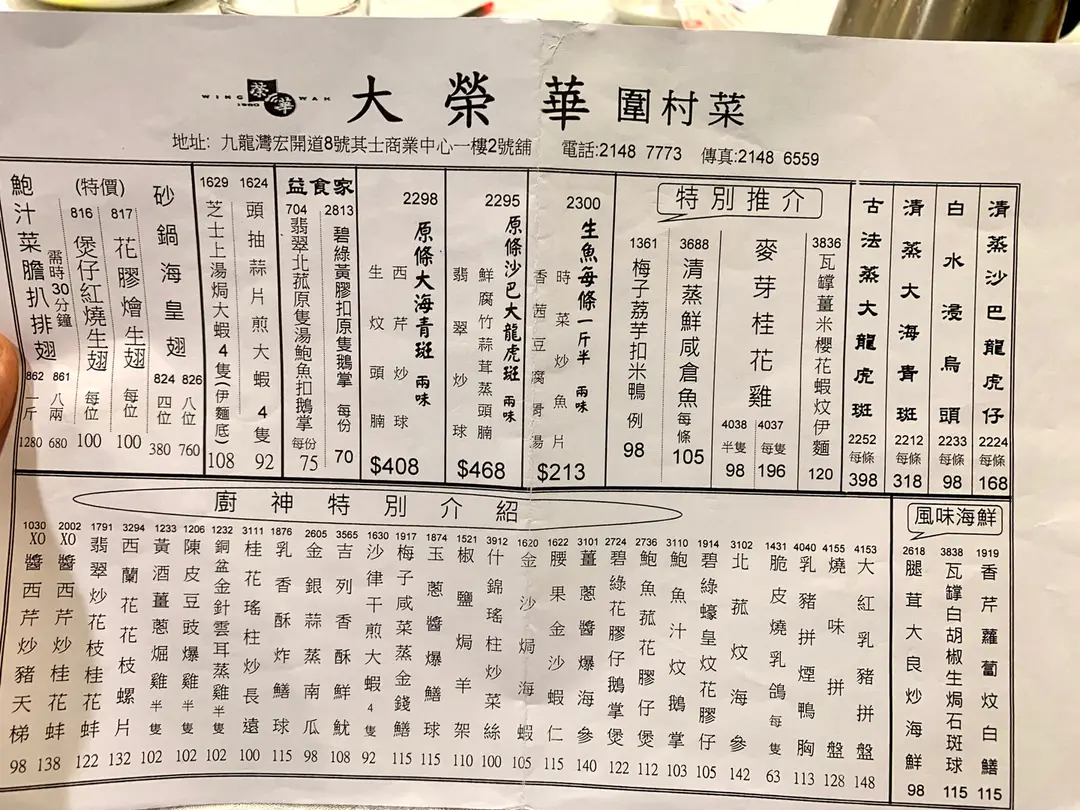 WING WAH
榮華
1950
大榮華圍村菜
地址: 九龍灣宏開道8號其士商業中心一樓2號舖 電話:2148 7773 傳真:2148 6559
清蒸沙巴龍虎仔 2224 每條 168
白水浸烏頭 2233 每條 98
清蒸大海青斑 2212 每條 318
古法蒸大龍虎斑 2252 每條 398
特別推介
3836 瓦罉薑米櫻花蝦炆伊麵 120
麥芽桂花雞
4037 每隻 196
4038 半隻 98
3688 清蒸鮮咸倉魚 每條 105
1361 梅子荔芋扣米鴨 例 98
2300 生魚每條一斤半 兩味
時菜炒魚片
香茜豆腐魚湯
$213
2295 原條沙巴大龍虎斑 兩味
鮮腐竹蒜茸蒸頭腩
翡翠炒球
$468
2298 原條大海青斑 兩味
西芹炒球
生炆頭腩
$408
益食家
2813 碧綠黃膠扣原隻鵝掌 每份 70
704 翡翠北菰原隻湯鮑魚扣鵝掌 每份 75
1624 頭抽蒜片煎大蝦4隻 92
1629 芝士上湯焗大蝦4隻(伊麵底) 108
砂鍋海皇翅
826 八位 760
824 四位 380
(特價)
817 花膠燴生翅 每位 100
816 煲仔紅燒生翅 每位 100
鮑汁菜膽扒排翅
需時30分鐘
861 八兩 680
862 一斤 1280
風味海鮮
1919 香芹蘿蔔炆白鱔 115
3838 瓦罉白胡椒生焗石斑球 115
2618 腿茸大良炒海鮮 98
廚神特別介紹
4153 大紅乳豬拼盤 148
4155 燒味拼盤 128
4040 乳豬拼煙鴨胸 113
1431 脆皮燒乳鴿 每隻 63
3102 北菰炆海參 142
1914 碧綠蠔皇炆花膠仔 105
3110 鮑魚汁炆鵝掌 103
2736 鮑魚菰花膠仔煲 112
2724 碧綠花膠仔鵝掌煲 122
1189 薑蔥醬爆海參 140
1622 腰果金沙蝦仁 115
1620 金沙焗海蝦 105
3912 什錦瑤柱炒菜絲 100
1521 椒鹽焗羊架 110
1874 玉蔥醬爆鱔球 115
1917 梅子咸菜蒸金錢鱔 115
1630 沙律干煎大蝦4隻 92
3565 吉列香酥鮮魷 108
2605 金銀蒜蒸南瓜 98
1876 乳香酥炸鱔球 115
3111 桂花瑤柱炒長遠 100
1232 銅盆金針雲耳蒸雞 半隻 102
1206 陳皮豆豉爆雞 半隻 102
1233 黃酒薑蔥焗雞 半隻 102
3294 西蘭花花枝螺片 132
1791 翡翠炒花枝桂花蚌 122
2002 XO醬西芹炒桂花蚌 138
1030 XO醬西芹炒豬天梯 98